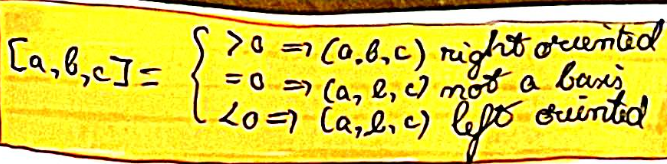 [a,b,c]= { >0 => (a,b,c) right oriented
=0 => (a,b,c) not a basis
<0 => (a,b,c) left oriented